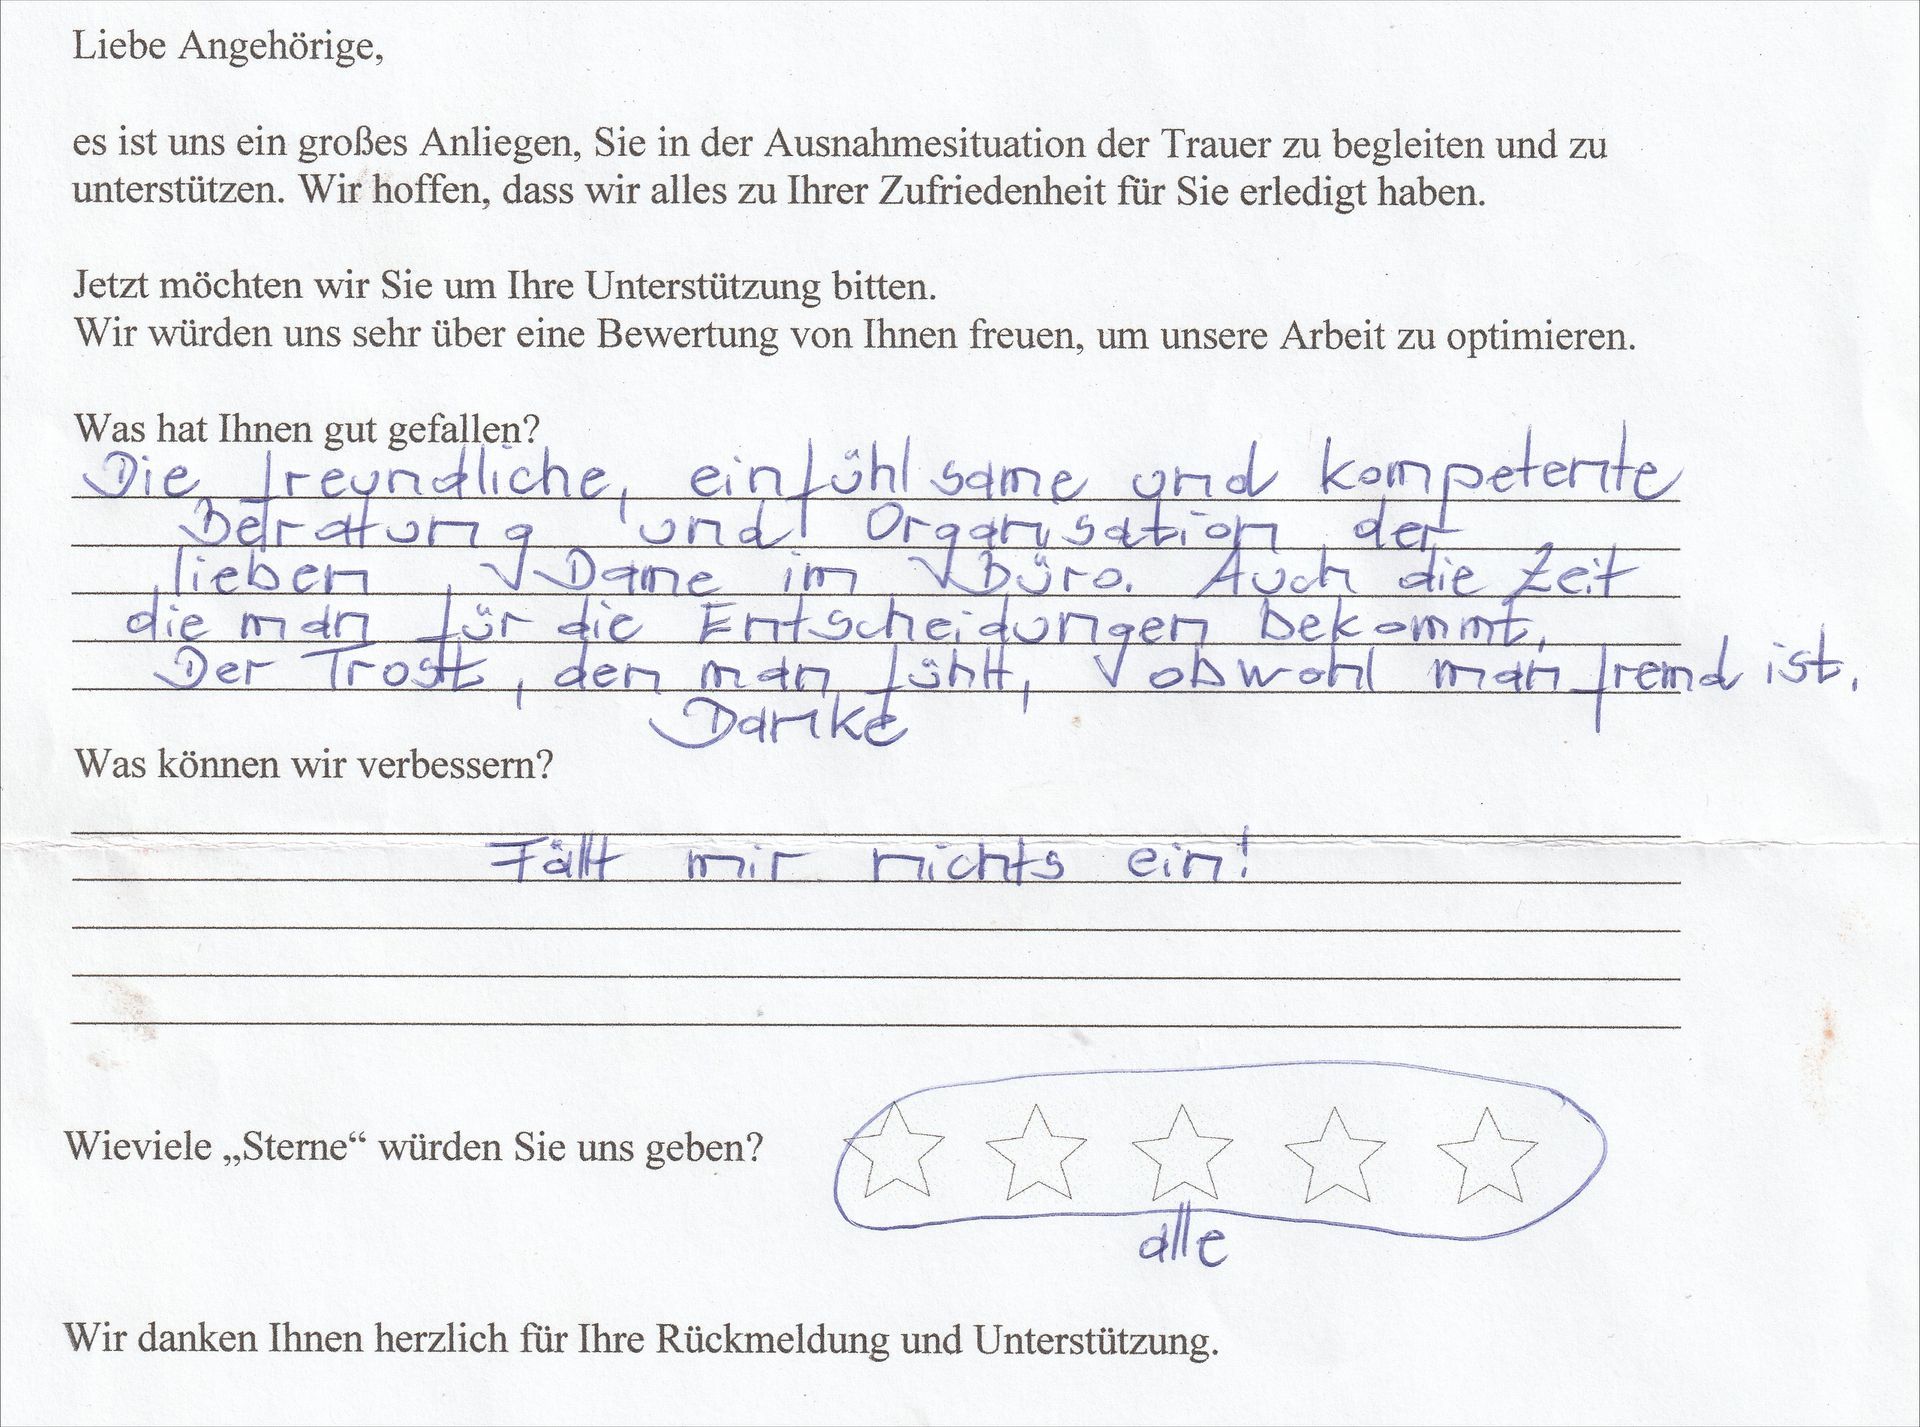 Liebe Angehörige,
es ist uns ein großes Anliegen, Sie in der Ausnahmesituation der Trauer zu begleiten und zu
unterstützen. Wir hoffen, dass wir alles zu Ihrer Zufriedenheit für Sie erledigt haben.
Jetzt möchten wir Sie um Ihre Unterstützung bitten.
Wir würden uns sehr über eine Bewertung von Ihnen freuen, um unsere Arbeit zu optimieren.
Was hat Ihnen gut gefallen?
Die freundliche, einfühlsame und kompetente
Beratung und Organisation der
lieben Dame im Büro. Auch die Zeit
die man für die Entscheidungen bekommt.
Der Trost, den man fühlt, obwohl man fremd ist.
Danke
Was können wir verbessern?
Fällt mir nichts ein!
Wieviele „Sterne“ würden Sie uns geben?
alle
Wir danken Ihnen herzlich für Ihre Rückmeldung und Unterstützung.